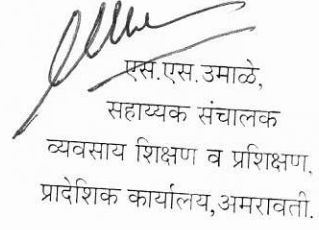 एस.एस.उमाळे,
सहाय्यक संचालक
व्यवसाय शिक्षण व प्रशिक्षण,
प्रादेशिक कार्यालय,अमरावती.